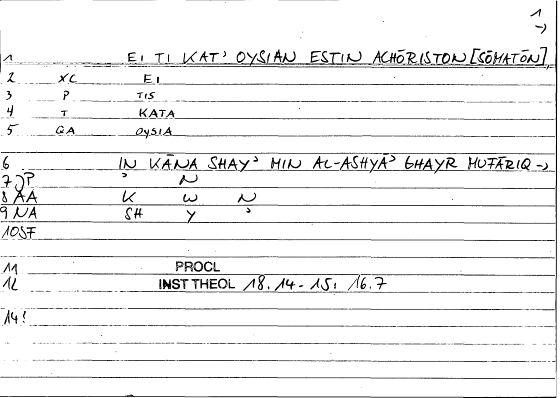 1
->
1 EI TI KAT' OYSIAN ESTIN ACHŌRISTON [SŌMATŌN],
2 XC EI
3 P TIS
4 T KATA
5 GA OYSIA
6 IN KĀNA SHAY' MIN AL-ASHYĀ' GHAYR MUFĀRIQ ->
7 JP ' N
8 AA K W N
9 NA SH Y '
10 SF
11 PROCL
12 INST THEOL 18.14-15; 16.7
14!